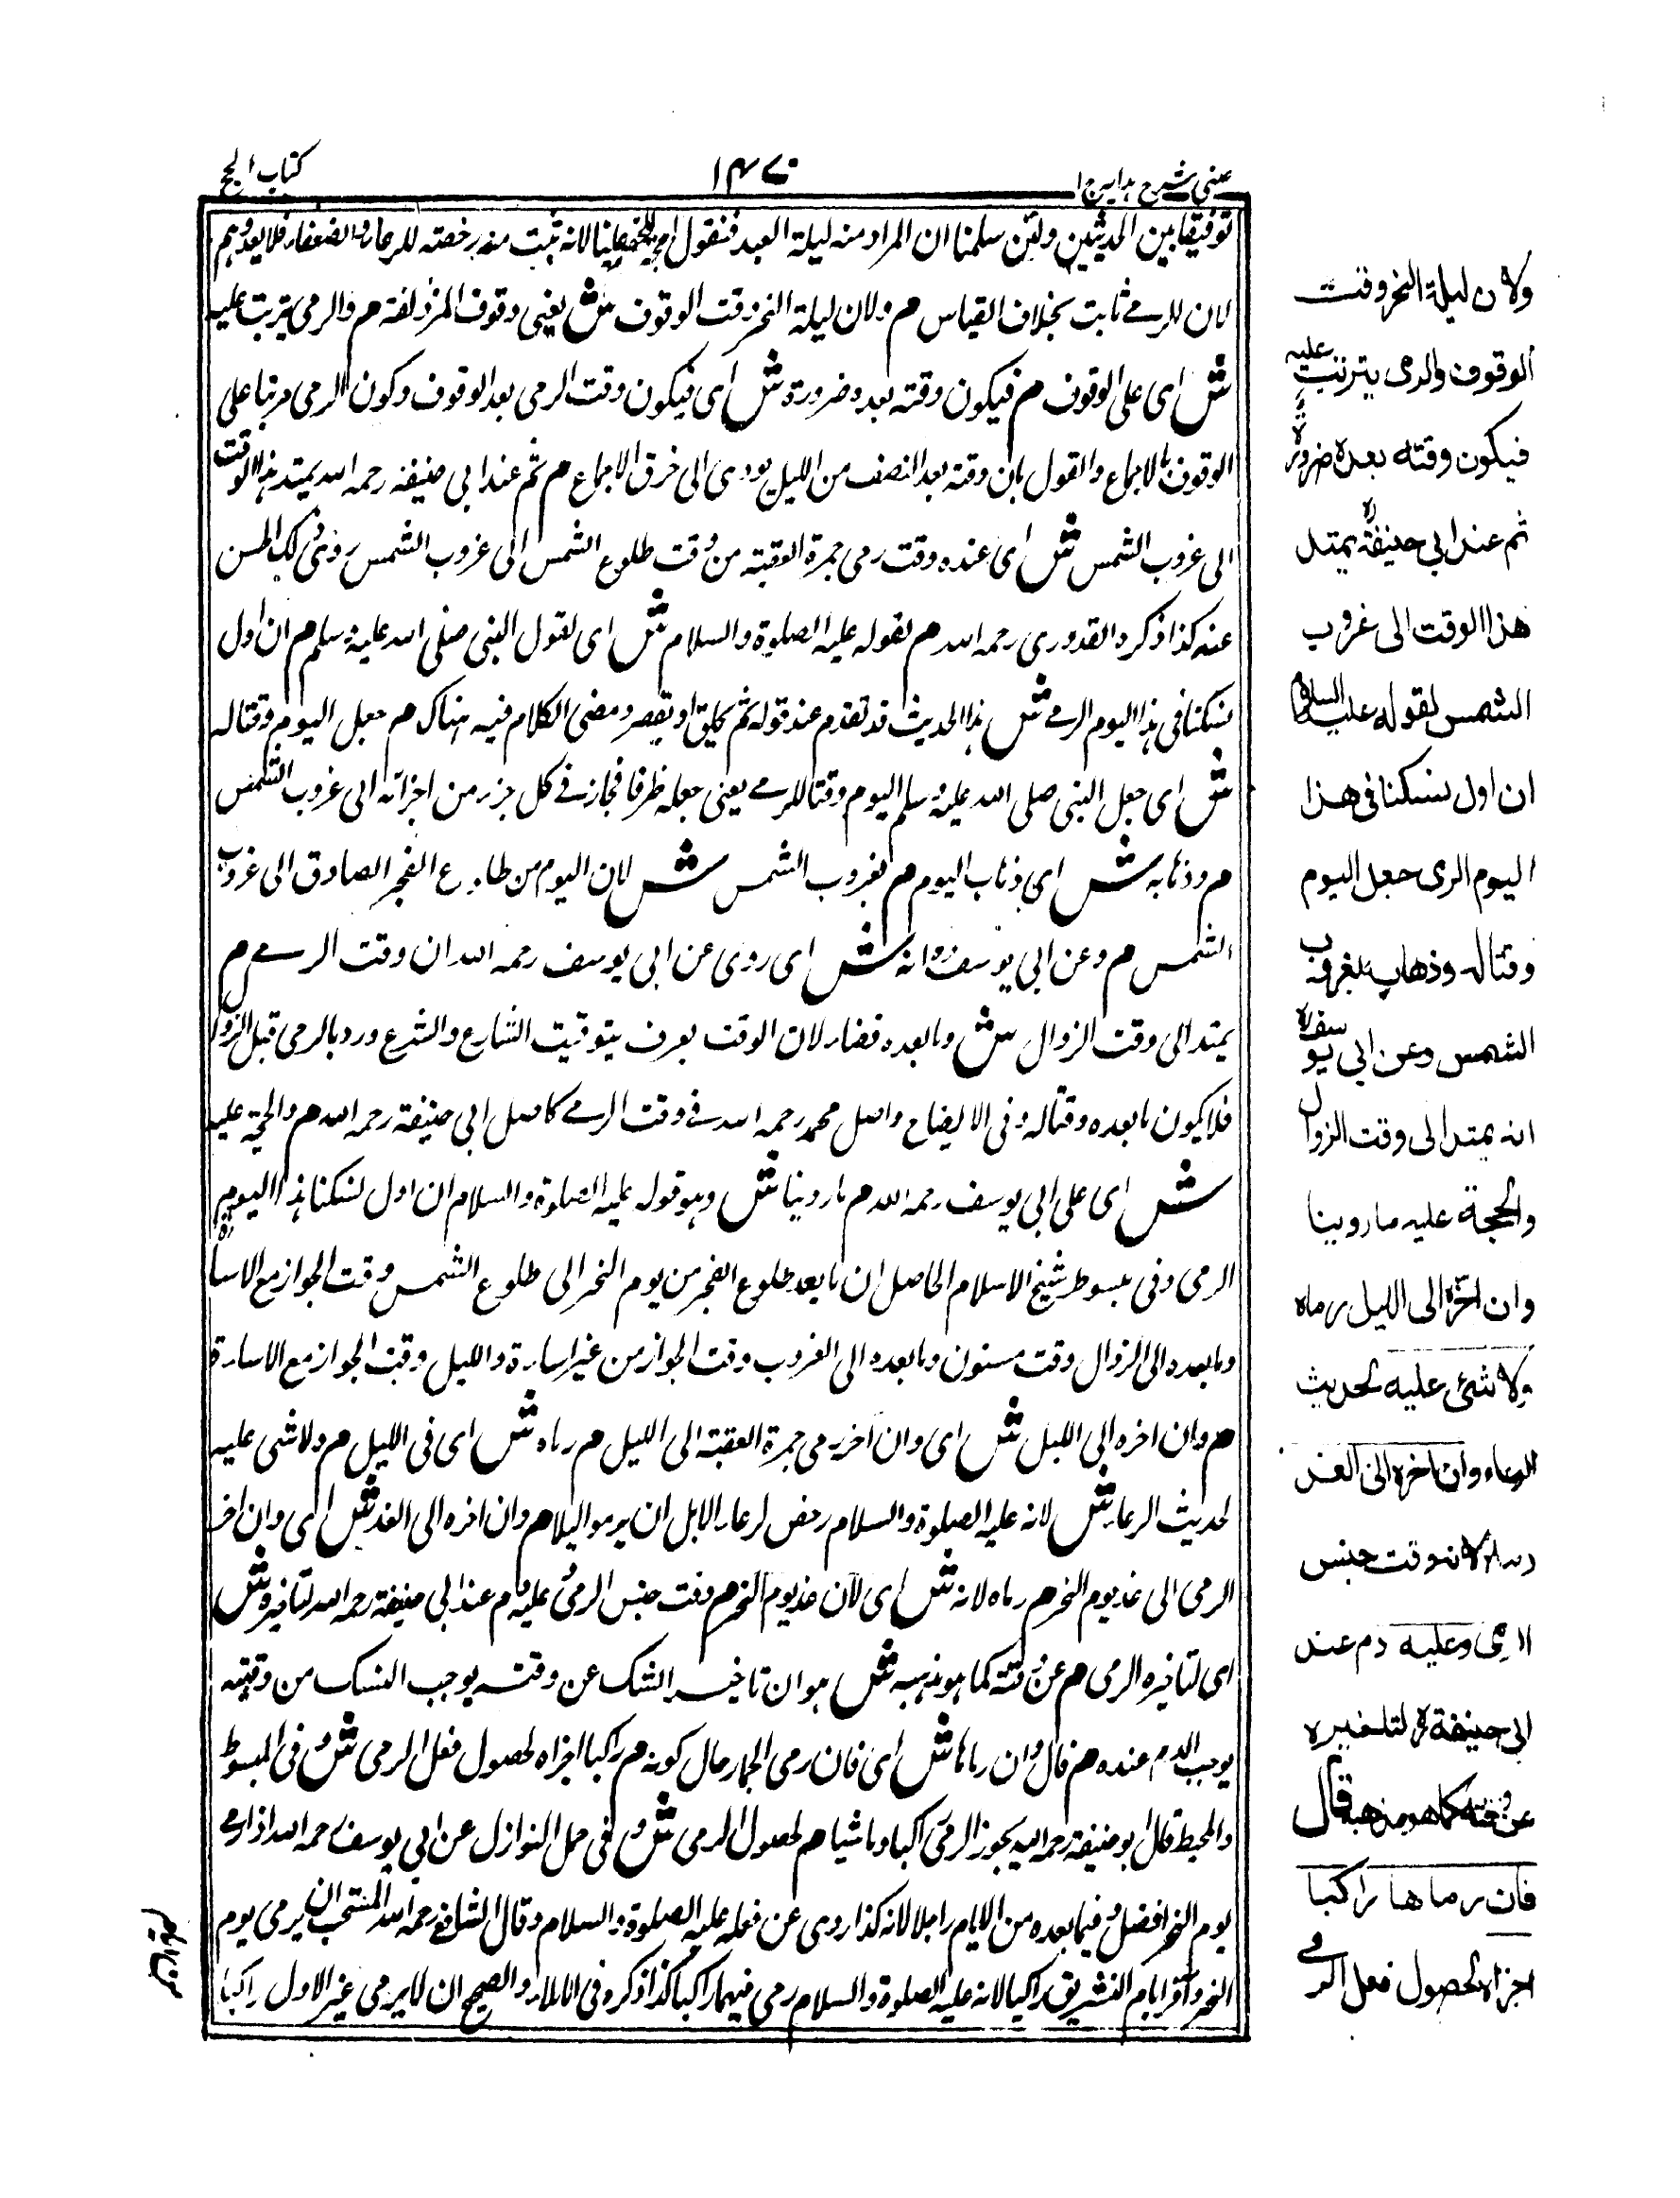 عینی شرح ہدایہ ج ا
۱۴۷۰
کتاب الحج
توفیقا بین الحدیثین ولئن سلمنا ان المراد منہ لیلة العید فنقول لانہ ثبت منہ رخصتہ للرعاء والضعفاء فلا یعدوہم
لان للرمے ثابت بخلاف القیاس م ولان لیلة النحر وقت الوقوف ش یعنی وقوف المزدلفة م والرمی یترتب علیہ
ش ای علی الوقوف م فیکون وقتہ بعدہ ضرورة ش ای فیکون وقت الرمی بعد الوقوف وکون الرمی مرتبا علی
الوقوف بالاجماع والقول بان وقتہ بعد النصف من اللیل یودی الی خرق الاجماع م ثم عند ابی حنیفة رحمہ اللہ یمتد ہذا الوقت
الی غروب الشمس ش ای عندہ وقت رمی جمرة العقبة من وقت طلوع الشمس الی غروب الشمس روی ذلک الحسن
عنہ کذا ذکرہ القدوری رحمہ اللہ م لقولہ علیہ الصلوة والسلام ش ای لقول النبی صلی اللہ علیہ وسلم م ان اول
نسکنا فی ہذا الیوم الرمے ش ہذا الحدیث قد تقدم عند قولہ ثم یحلق او یقصر ومضی الکلام فیہ ہناک م جعل الیوم وقتا لہ
ش ای جعل النبی صلی اللہ علیہ وسلم الیوم وقتا للرمے یعنی جعلہ ظرفا فجاز فے کل جزء من اجزائہ الی غروب الشمس
م وذہابہ ش ای ذہاب الیوم م بغروب الشمس ش لان الیوم من طلوع الفجر الصادق الی غروب
الشمس م وعن ابی یوسف رہ انہ ش ای روی عن ابی یوسف رحمہ اللہ ان وقت الرمے م
یمتد الی وقت الزوال ش وما بعدہ قضاء لان الوقت یعرف بتوقیت الشارع والشرع ورد بالرمی قبل الزوال
فلا یکون ما بعدہ وقتا لہ وفی الایضاح واصل محمد رحمہ اللہ فے وقت الرمے کاصل ابی حنیفة رحمہ اللہ م والحجة علیہ
ش ای علی ابی یوسف رحمہ اللہ م ما روینا ش وہو قولہ علیہ الصلوة والسلام ان اول نسکنا ہذا الیوم
الرمی وفی مبسوط شیخ الاسلام الحاصل ان ما بعد طلوع الفجر من یوم النحر الی طلوع الشمس وقت الجواز مع الاساءة
وما بعدہ الی الزوال وقت مسنون وما بعدہ الی الغروب وقت الجواز من غیر اساءة واللیل وقت الجواز مع الاساءة
م وان اخرہ الی اللیل ش ای وان اخر رمی جمرة العقبة الی اللیل م رماہ ش ای فی اللیل م ولا شی علیہ
لحدیث الرعاء ش لانہ علیہ الصلوة والسلام رخص لرعاء الابل ان یرموا لیلا م وان اخرہ الی الغد ش ای وان اخر
الرمی الی غد یوم النحر م رماہ لانہ ش ای لان غد یوم النحر م وقت جنس الرمی وعلیہ دم عند ابی حنیفة رحمہ اللہ لتاخیرہ ش
ای لتاخیرہ الرمی م عن وقتہ کما ہو مذہبہ ش ہو ان تاخیر النسک عن وقتہ یوجب النسک من وقتہ
یوجب الدم عندہ م قال وان رماہا ش ای فان رمی الجمار حال کونہ م راکبا اجزاہ لحصول فعل الرمی ش وفی المبسوط
والمحیط قال ابو حنیفة رحمہ اللہ یجوز الرمی راکبا وماشیا م لحصول الرمی ش وفی النوازل عن ابی یوسف رحمہ اللہ
یوم النحر افضل وفیما بعدہ من الایام راجلا لانہ کذا روی عن فعلہ علیہ الصلوة والسلام وقال الشافعی رحمہ اللہ المستحب ان یرمی یوم
النحر وآخر ایام التشریق راکبا لانہ علیہ الصلوة والسلام رمی فیہما راکبا کذا ذکرہ فی الاملاء والصحیح ان لا یرمی غیر الاول راکبا
ولان لیلة النحر وقت
الوقوف والرمی یترتب علیہ
فیکون وقتہ بعدہ ضرورة
ثم عند ابی حنیفة رہ یمتد
ھذا الوقت الی غروب
الشمس لقولہ علیہ السلام
ان اول نسکنا فی ھذا
الیوم الرمی جعل الیوم
وقتا لہ وذھابہ بغروب
الشمس وعن ابی یوسف رہ
انہ یمتد الی وقت الزوال
والحجة علیہ ما روینا
وان اخرہ الی اللیل رماہ
ولا شئ علیہ لحدیث
الرعاء وان اخرہ الی الغد
رماہ لانہ وقت جنس
الرمی وعلیہ دم عند
ابی حنیفة رہ لتاخیرہ
عن وقتہ کما ھو مذھبہ قال
فان رماھا راکبا
اجزاہ لحصول فعل الرمی